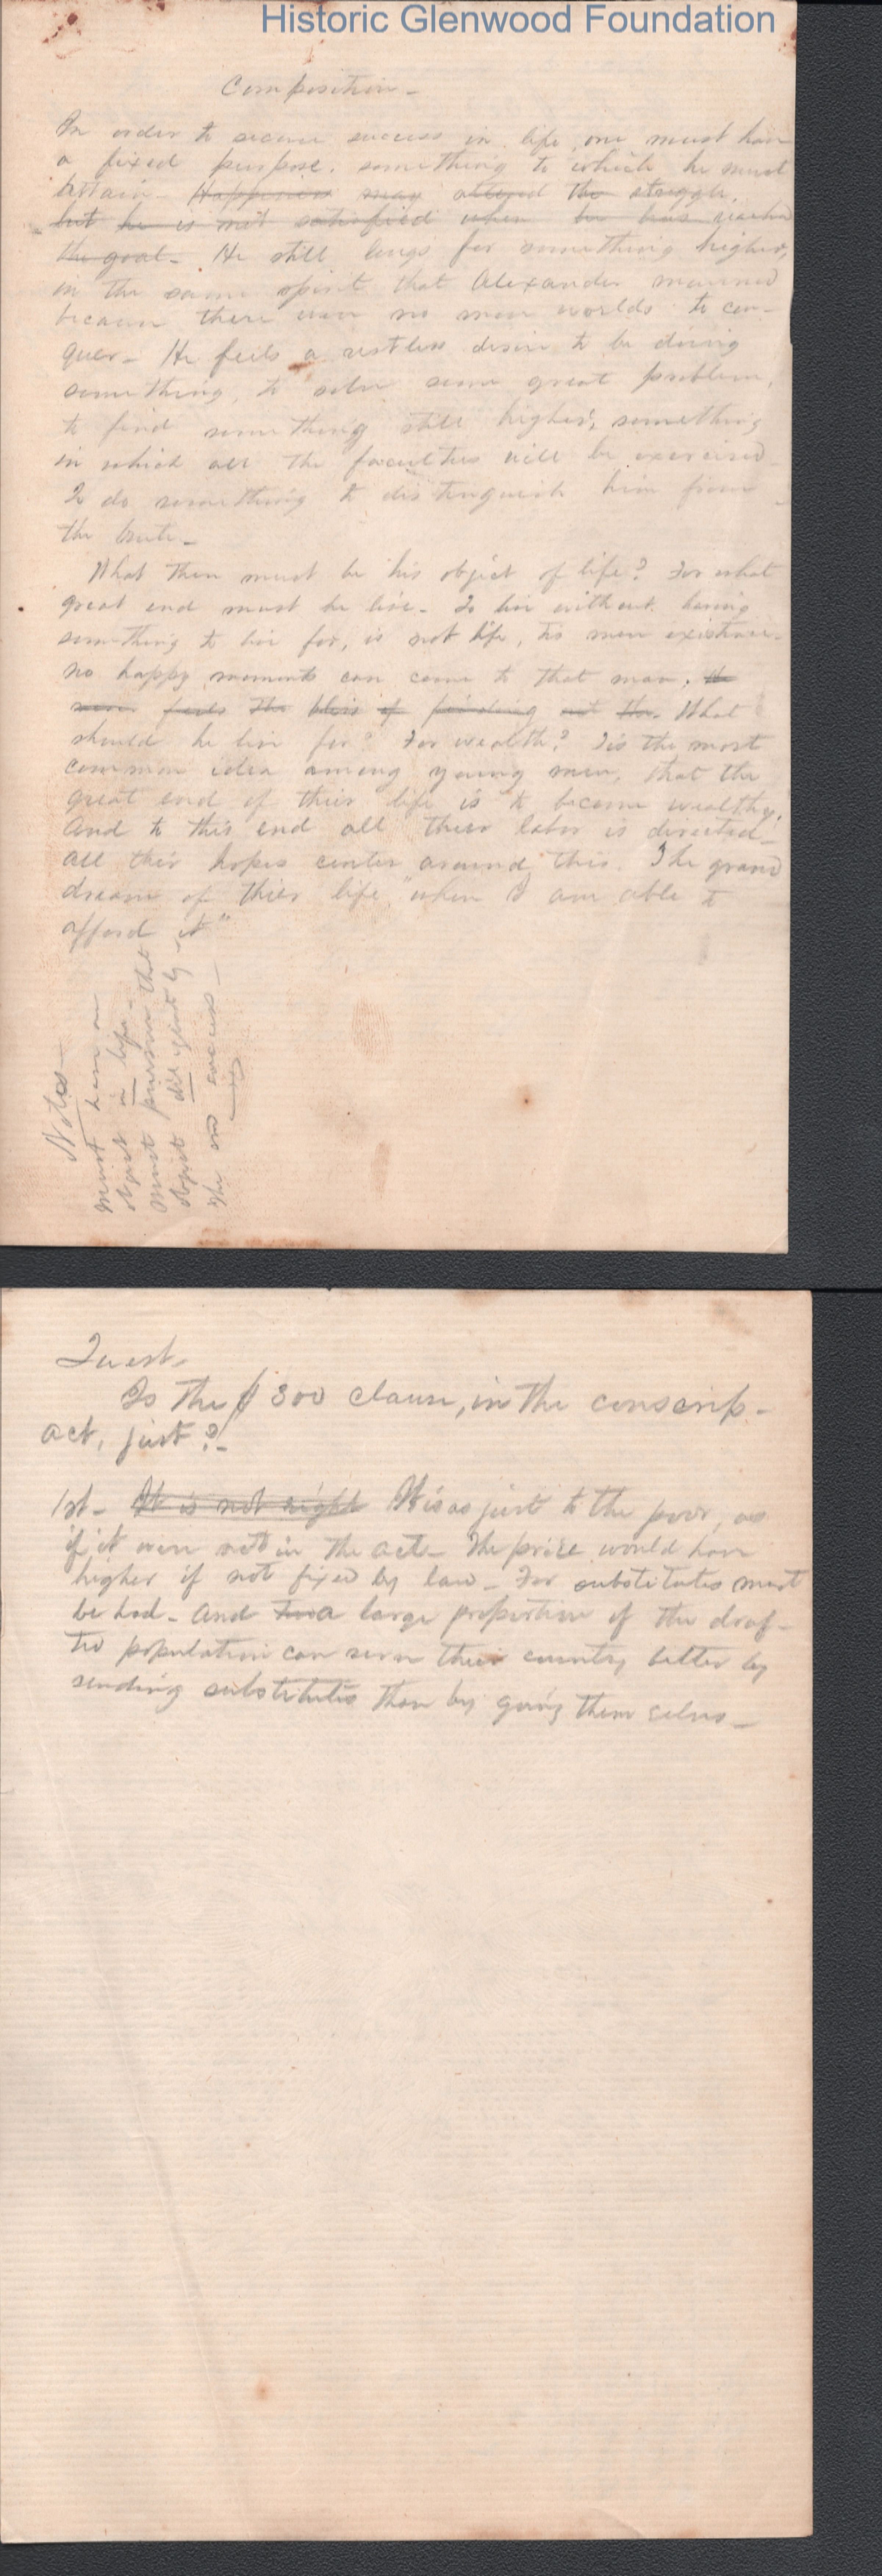 Historic Glenwood Foundation
Composition -
In order to secure success in life, one must have
a fixed purpose, something to which he must
attain - Happiness may attend the struggle,
but he is not satisfied when he has reached
the goal - He still longs for something higher,
in the same spirit that Alexander mourned
because there were no more worlds to con-
quer - He feels a restless desire to be doing
something, to solve some great problem,
to find something still higher, something
in which all the faculties will be exercised
To do something to distinguish him from
the brute -
What then must be his object of life? For what
great end must he live - To live without having
something to live for, is not life, tis mere existence -
no happy moments can come to that man. He
never feels the bliss of finding out the. What
should he live for? For wealth? Tis the most
common idea among young men, that the
great end of thier life is to become wealthy.
And to this end all thier labor is directed -
all thier hopes center around this. The grand
dream of thier life "when I am able to
afford it"
Notes -
Must have an
object in life -
Must pursue that
object diligently -
The end success -
Quest -
Is the $300 clause, in the conscrip -
act, just? -
1st - It is not right It is as just to the poor, as
if it were not in the act - The price would have
higher if not fixed by law - For substitutes must
be had - And a large proportion of the draf-
ted population can serve their country better by
sending substitutes than by going them selves -